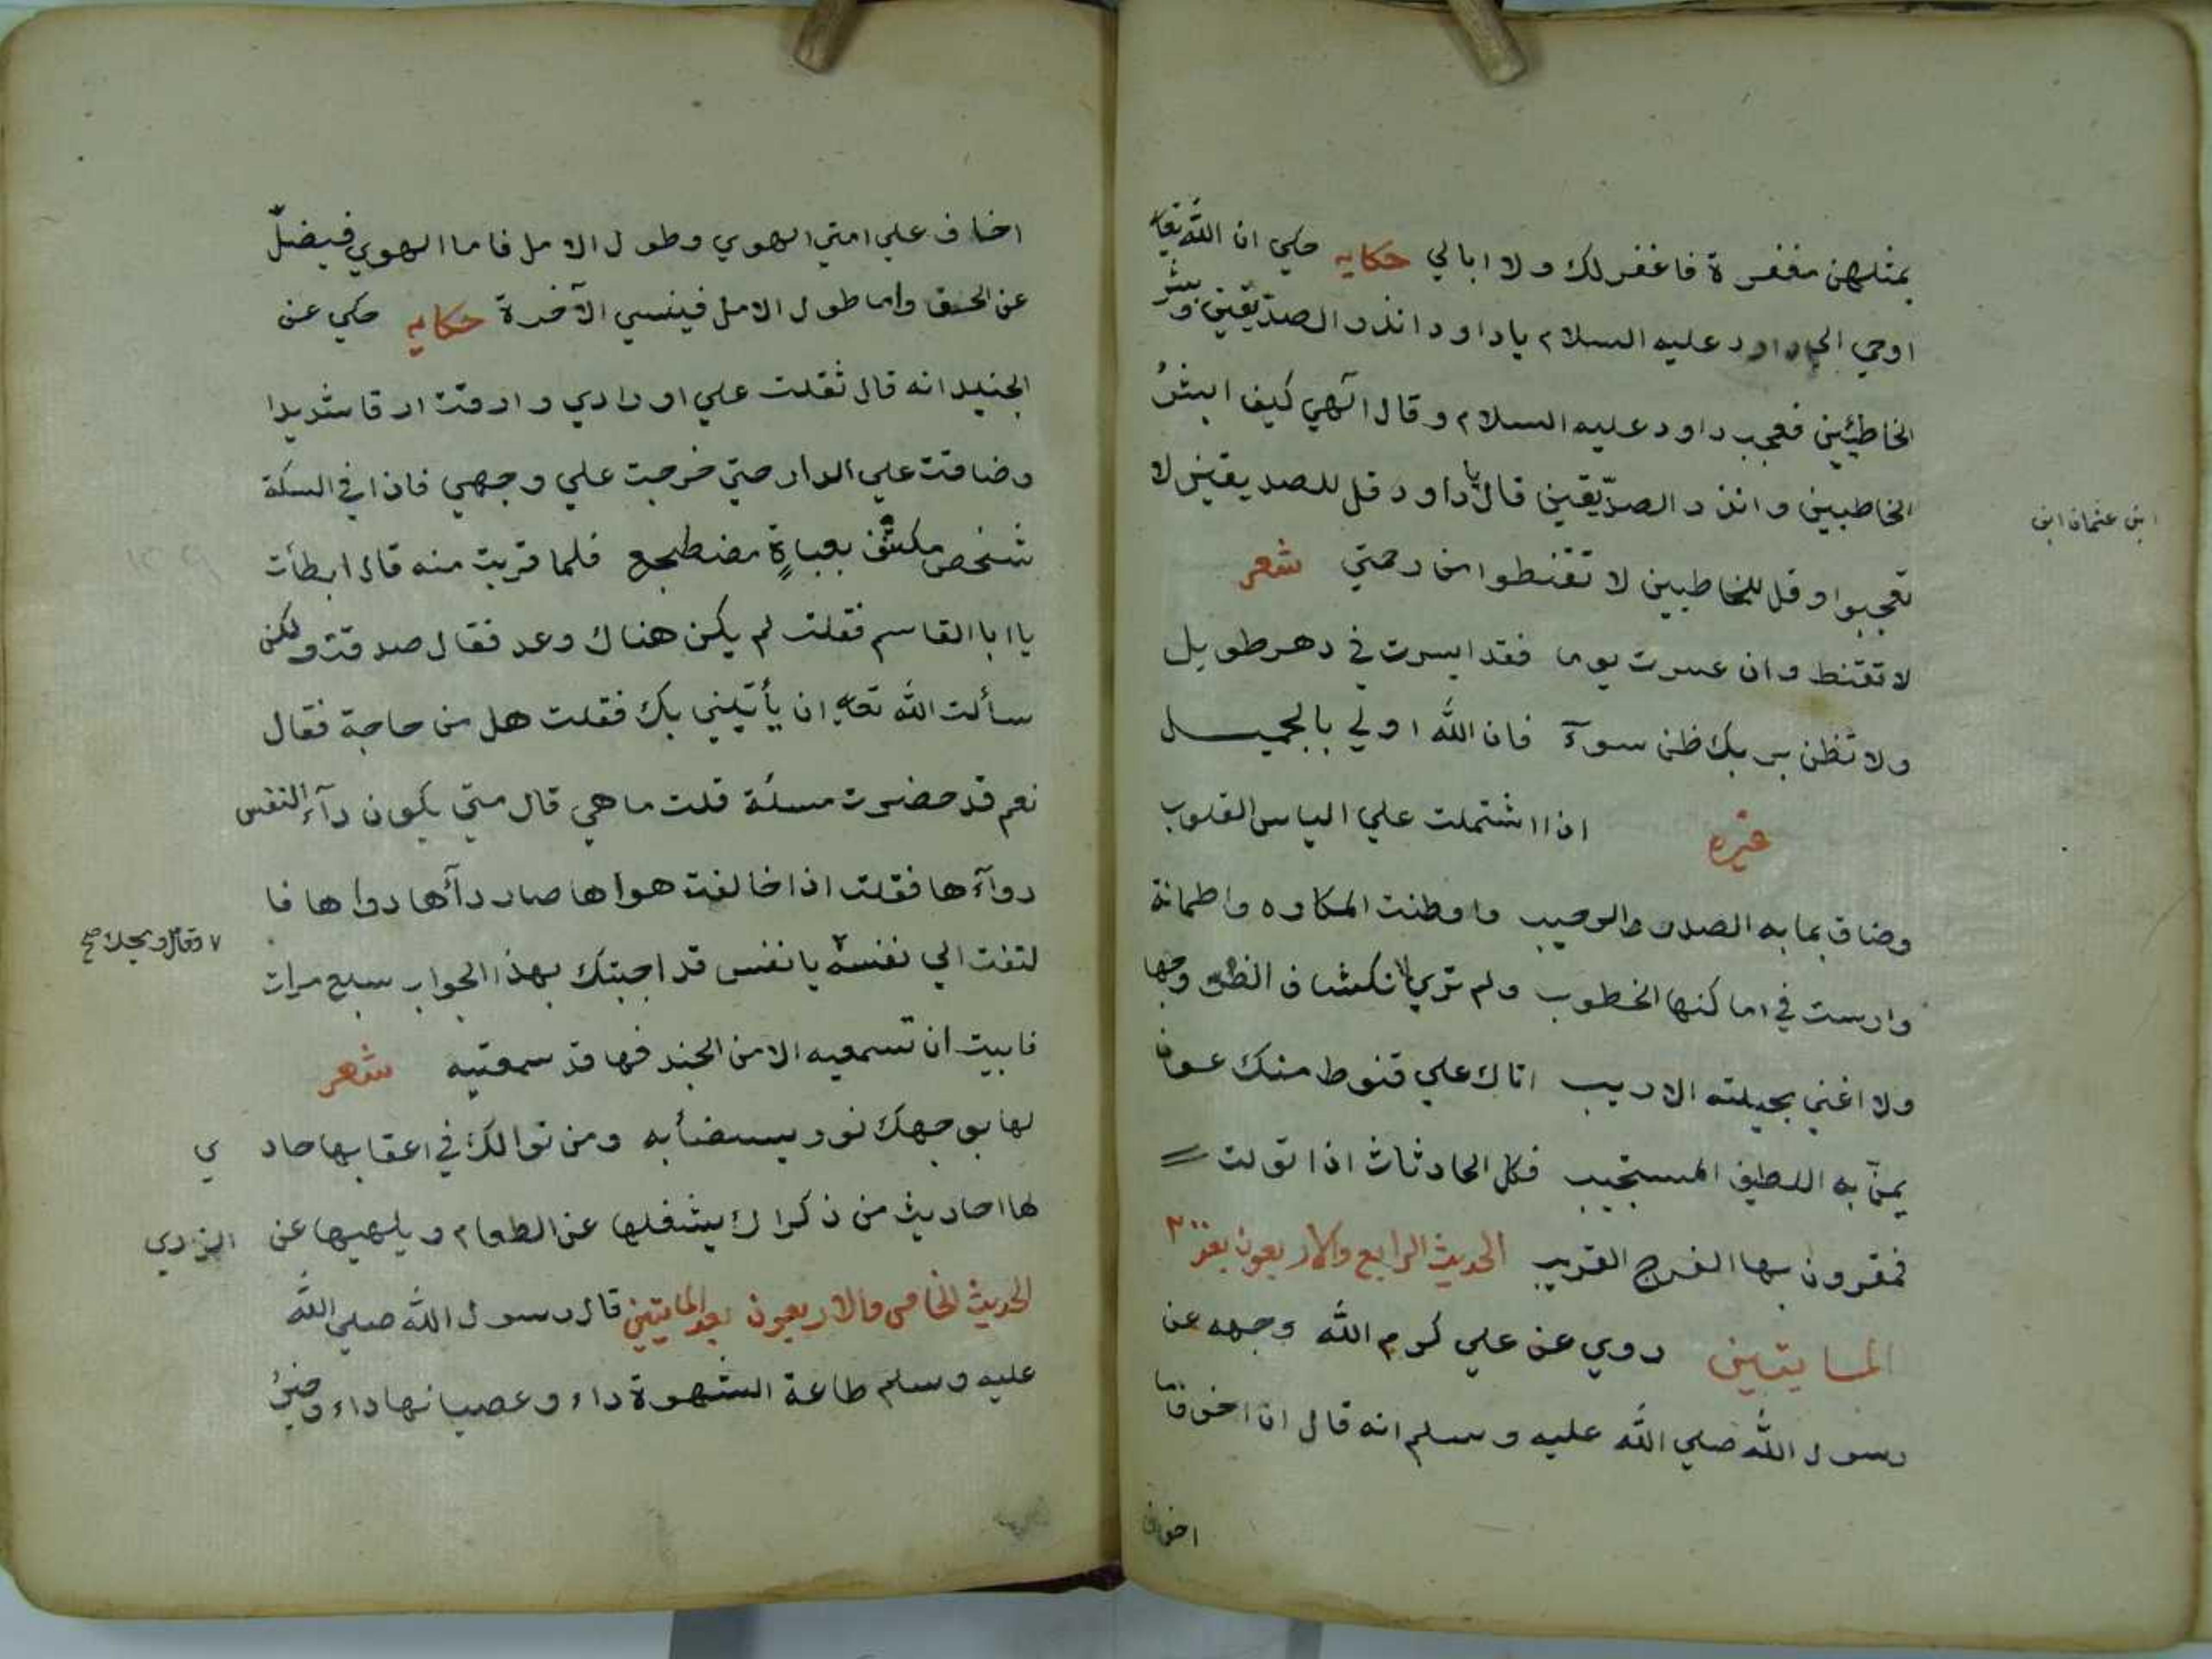 بمثلهن مغفرة فاغفر لك ولا ابالي حكايه حكي ان الله تعالي
اوحي الي داود عليه السلام يا داود انذر الصديقين وبشر
الخاطئين فعجب داود عليه السلام وقال الهي كيف ابشر
الخاطيين وانذر الصديقين قال يا داود قل للصديقين لا
تعجبوا وقل للخاطيين لا تقنطوا من رحمتي شعر
لا تقنط وان عسرت يوما فقد ايسرت في دهر طويل
ولا تظن بربك ظن سوء فان الله اولي بالجميل
غيره اذا اشتملت علي الياس القلوب
وضاق بما به الصدر والرحيب واوطنت المكاره واطمانة
وارست في اماكنها الخطوب ولم تري لانكشاف الضر وجها
ولا اغني بحيلته الاريب اتاك علي قنوط منك عون
يمن به اللطيف المستجيب فكل الحادثات اذا تولت
فمقرون بها الفرج القريب الحديث الرابع والاربعون بعد
المايتين روي عن علي كرم الله وجهه عن
رسول الله صلي الله عليه وسلم انه قال ان اخوف ما
ابن عثمان ابن
اخاف علي امتي الهوي وطول الامل فاما الهوي فيضل
عن الحق واما طول الامل فينسي الآخرة حكايه حكي عن
الجنيد انه قال ثقلت علي اورادي وارقت ارقا شديدا
وضاقت علي الدار حتي خرجت علي وجهي فاذا في السكة
شخص مكتنف بعباة مضطجع فلما قربت منه قال ابطأت
يا ابا القاسم فقلت لم يكن هناك وعد فقال صدقت ولكن
سألت الله تعالي ان يأتيني بك فقلت هل من حاجة فقال
نعم قد حضرت مسئلة قلت ما هي قال متي يكون دآء النفس
دوآءها فقلت اذا خالفت هواها صار دآءها دواها فا
لتفت الي نفسه ٧ يا نفس قد اجبتك بهذا الجواب سبع مرات
فابيت ان تسمعيه الا من الجند فها قد سمعتيه شعر
لها بوجهك نور يستضأ به ومن نوالك في اعقابها حاد ي
لها احاديث من ذكراك يشغلها عن الطعام ويلهيها عن الزدي
الحديث الخامس والاربعون بعد المايتين قال رسول الله صلي الله
عليه وسلم طاعة الشهوة داء وعصيانها داء وخير
٧ وقال ويحك صح